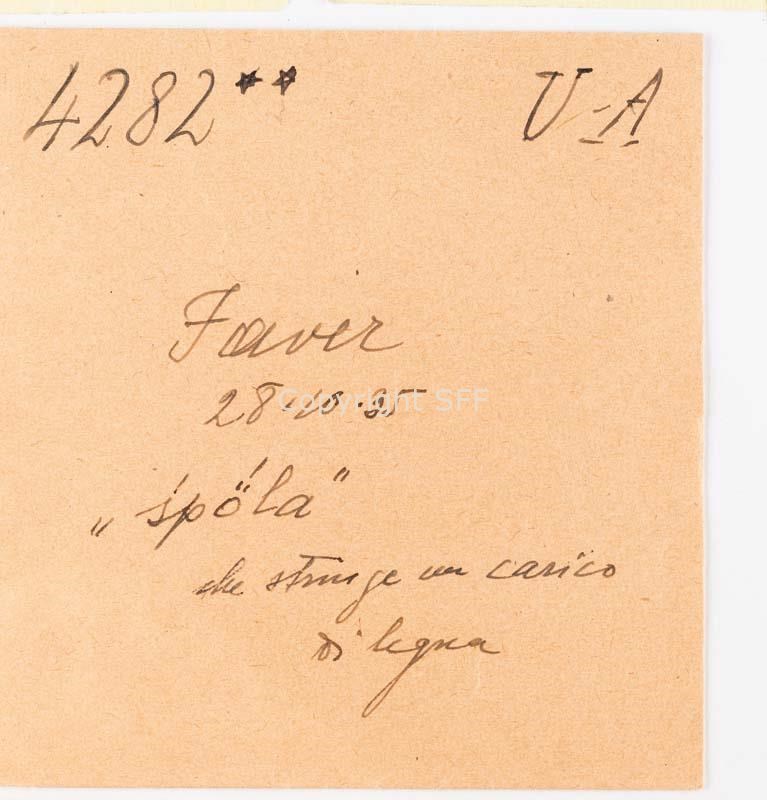 4282** V-A
Faver
28·10·85
Copyright SFF
„śpö́la"
che stringe un carico
di legna